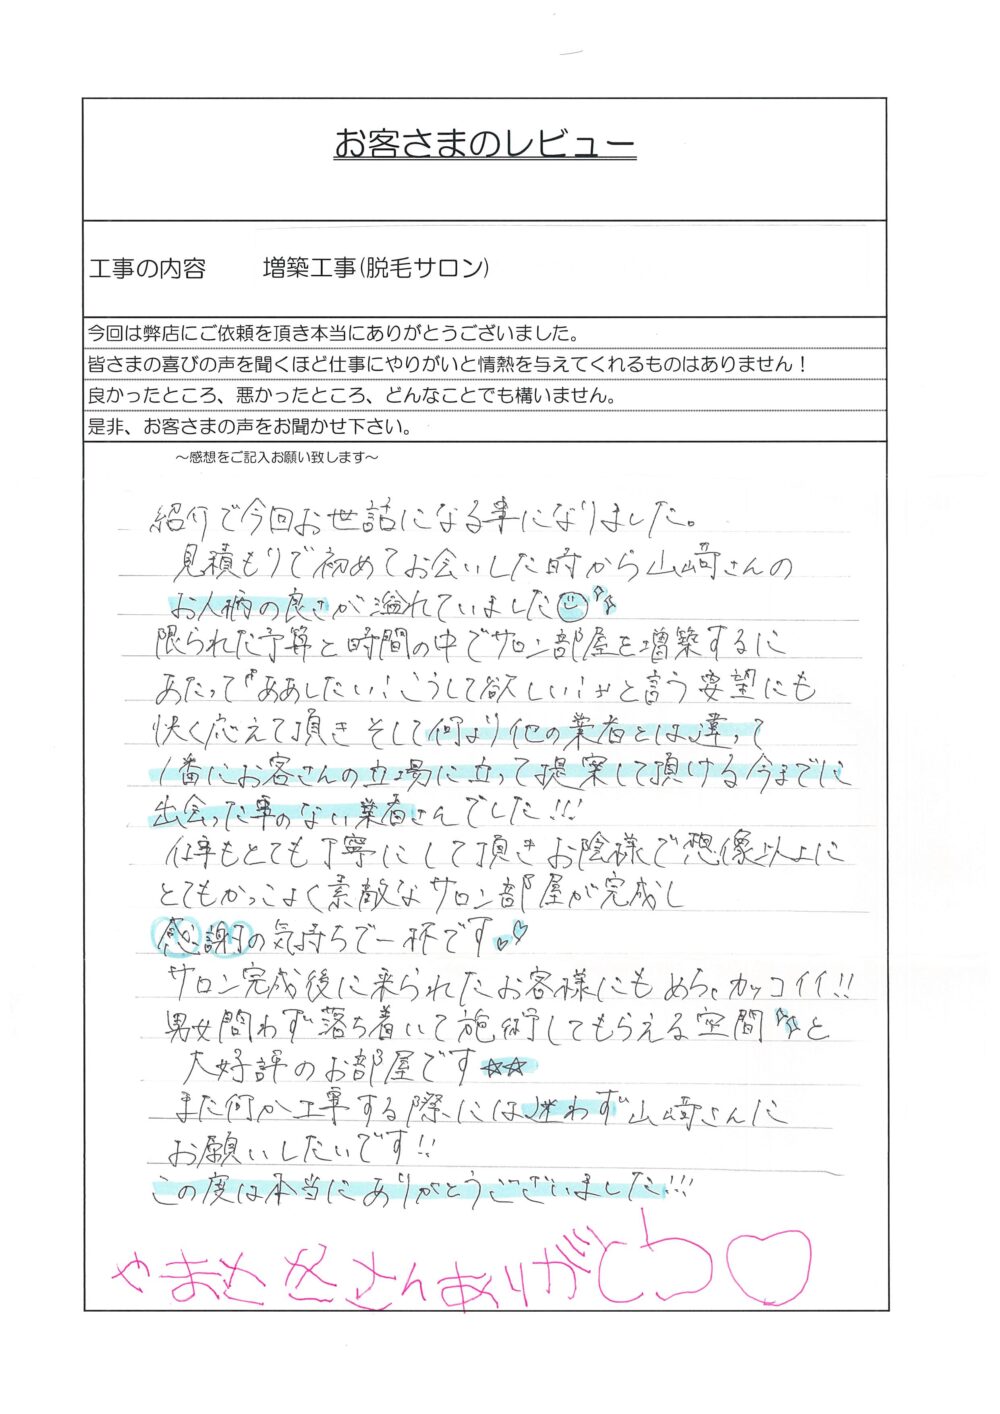 お客さまのレビュー
工事の内容 増築工事(脱毛サロン)
今回は弊店にご依頼を頂き本当にありがとうございました。
皆さまの喜びの声を聞くほど仕事にやりがいと情熱を与えてくれるものはありません！
良かったところ、悪かったところ、どんなことでも構いません。
是非、お客さまの声をお聞かせ下さい。
～感想をご記入お願い致します～
紹介で今回お世話になる事になりました。
見積もりで初めてお会いした時から山﨑さんの
お人柄の良さが溢れていました
限られた予算と時間の中でサロン部屋を増築するに
あたって「ああしたい！こうして欲しい！」と言う要望にも
快く応えて頂き そして何より他の業者とは違って
1番にお客さんの立場に立って提案して頂ける今までに
出会った事のない業者さんでした!!!
仕事もとても丁寧にして頂きお陰様で想像以上に
とてもかっこよく素敵なサロン部屋が完成し
感謝の気持ちで一杯です
サロン完成後に来られたお客様にもめちゃカッコイイ!!
男女問わず落ち着いて施術してもらえる空間と
大好評のお部屋です☆☆
また何か工事する際には迷わず山﨑さんに
お願いしたいです!!
この度は本当にありがとうございました!!!
やまさきさんありがとう♡